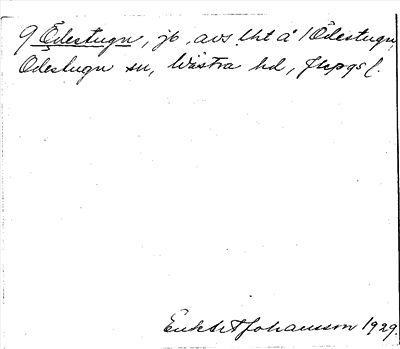 9 Ödestugu, jb, avs. lht å 1 Ödestugu,
Ödestugu sn, Västra hd, Jkpgs l.
Enl A Johansson 1929.